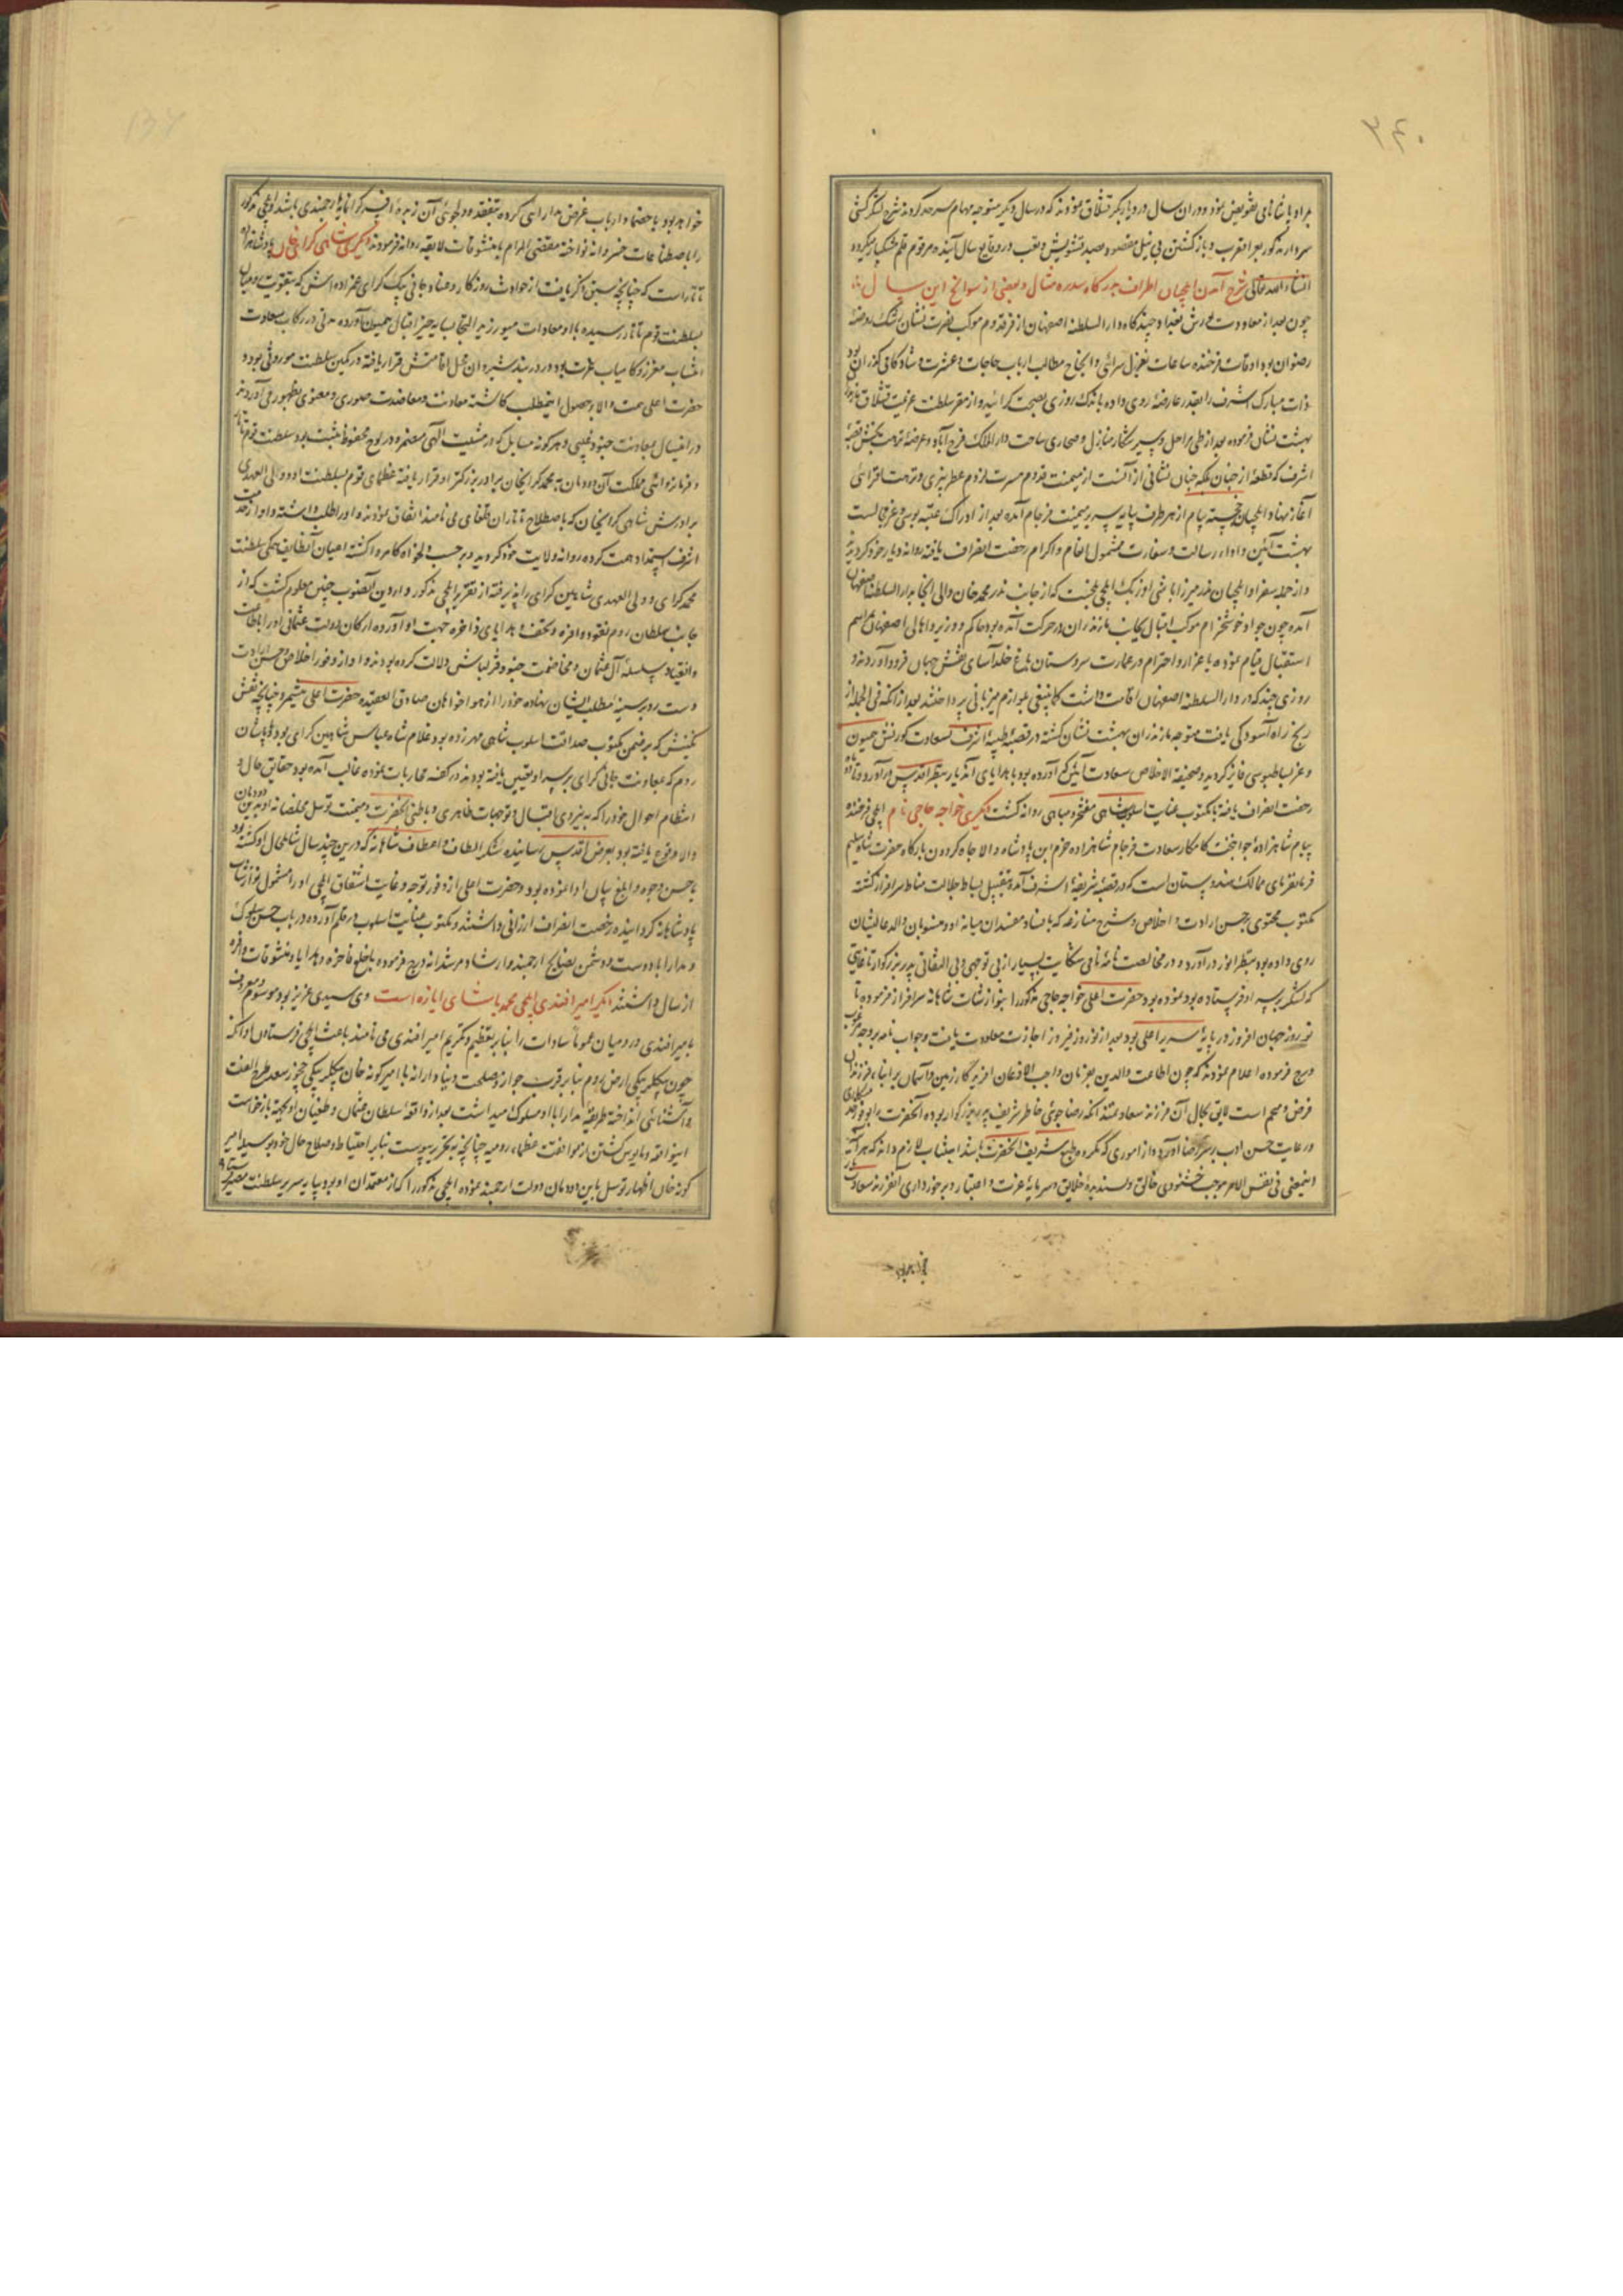 ۳۴۰
براو با شاه نامی تفویض نمود و در ان سال در دیار بکر قشلاق نمودند که در سال دیگر متوجه مهام سرحد کردند شرح لشکرکشی
سردار مذکور بعراق عرب و بازگشتن بی نیل مقصود بصد تشویش و تعب در وقایع سال آینده مرقوم قلم مشکبار میگردد
انشاء الله تعالی شرح آمدن ایلچیان اطراف بدرگاه سدره مثال و بعضی از سوانح این سال
چون بعد از معاودت یورش بغداد چندگاه دار السلطنه اصفهان از فر قدوم موکب نصرت نشان رشک روضه
رضوان بود اوقات فرخنده ساعات بغزل سرائی و انجاح مطالب ارباب حاجات و عشرت و شادکامی گذران بود
ذات مبارک اشرف را بقدر عارضهٔ روی داده باندک روزی بصحت گرائید و از مقر سلطنت عزیمت قشلاق
بهشت نشان فرموده بعد از طی مراحل و سیر شکار منازل و صحاری ساحت دار الملک فرح آباد و عرصهٔ نزهت بخش قصبهٔ
اشرف که قطعهٔ از جنان بلکه جنان نشانی از آنست از میمنت قدوم مسرت لزوم عطر بیزی و نزهت افزائی
آغاز نهاد و ایلچیان خجسته پیام از هر طرف بپایه سریر میمنت فرجام آمده بعد از ادراک عتبه بوسی و عز مجالست
بهشت آئین و اداء رسالت و سفارت مشمول انعام و اکرام رخصت انصراف یافته روانه دیار خود گردیدند
و از جمله سفرا و ایلچیان نذر میرزا باشی اوزبک ایلچی بلخست که از جانب نذر محمد خان والی آنجا بدار السلطنه اصفهان
آمده چون جواد خوشخرام موکب اقبال بجانب مازندران در حرکت آمده بود حاکم و وزیر و اهالی اصفهان مراسم
استقبال قیام نموده باعزاز و احترام در عمارت سروستان باغ خلد آسای نقش جهان فرود آوردند و
روزی چند که در دار السلطنه اصفهان اقامت داشت کما ینبغی بلوازم میزبانی پرداختند بعد از آنکه فی الجمله از
رنج راه آسودگی یافت متوجه مازندران بهشت نشان گشته در قصبهٔ طیبهٔ اشرف بسعادت کورنش همیون
و عز بساط بوسی فایز گردید و صحیفة الاخلاص سعادت آئین که آورده بود با هدایای آندیار بنظر اقدس درآورد و
رخصت انصراف یافته با مکتوب عنایت اسلوب شاهی مفتخر و مباهی روانه گشت دیگری خواجه حاجی نام ایلچی فرخنده
پیام شاهزادهٔ جوانبخت کامکار سعادت فرجام شاهزاده خرم ابن پادشاه والا جاه گردون بارگاه حضرت شاه سلیم
فرمانفرمای ممالک هندوستان است که در قصبهٔ شریفهٔ اشرف آمده بتقبیل بساط جلالت مناط سرافراز گشته
مکتوب محتوی بر حسن ارادت و اخلاص و شرح منازعه که بافساد مفسدان میانه او و منسوبان والد عالیشان
روی داده بود بنظر انور درآورده در مخالصت نامهٔ نامی شکایت بسیار از بی توجهی و بی التفاتی پدر بزرگوار تا غایتی
که لشکر بر سر او فرستاده بود نموده بود حضرت اعلی خواجه حاجی مذکور را بنوازشات شاهانه سرافراز فرموده تا
نوروز جهان افروز در پایهٔ سریر اعلی بود بعد از نوروز فیروز اجازت معاودت یافت و جواب نامه بر وجه مرغوب
درج فرموده اعلام نمودند که چون اطاعت والدین بفرمان واجب الاذعان آفریدگار زمین و آسمان بر ابناء و فرزندان
فرض و محتم است لایق بحال آن فرزند سعادتمند آنکه رضا جوئی خاطر شریف پدر بزرگوار بوده آنحضرت را بوفور خدمتکاری
و رعایت حسن ادب بر سر رضا آورد و از اموری که مکروه طبع شریف آنحضرت باشد اجتناب لازم داند که هر آینه
اینمعنی فی نفس الامر موجب خشنودی خالق و پسندیدهٔ خلایق و سرمایهٔ عزت و اعتبار و برخورداری آنفرزند سعادت یار
خواهد بود با خصماء و ارباب غرض مدارای کرده بتفقد و دلجوئی آن زبدهٔ افسر گرانمایه ارجمندی باشد ایلچی مذکور
را باصطناعات خسروانه نواخته مقضی المرام با تنسوقات لایقه روانه فرمودند دیگری شاهی کرای خان پادشاهزاده
تاتار است که چنانچه سبق ذکر یافت از حوادث روزگار و عناد جانی بیک کرای عمزاده اش که بتقویت رومیان
بسلطنت قوم تاتار رسیده با او معادات میورزید التجا بسایه چتر اقبال همیون آورده مدتی در رکاب سعادت
انتساب معزز و کامیاب عزت بود و در دربند شیروان محل اقامتش قرار یافته در کمین سلطنت موروثی بود و
حضرت اعلی همت والا بر حصول اینمطلب گماشته معاونت و معاضدت صوری و معنوی بظهور می آوردند
در اینسال بمعاونت جنود غیبی و هر گونه مسایل که در مشیت الهی مضمر و در لوح محفوظ مثبت بود سلطنت قوم تاتار
و فرمانروائی مملکت آن دودمان بمحمد کرایخان برادر بزرگتر او قرار یافته عظمای قوم بسلطنت او و ولی العهدی
برادرش شاهی کرایخان که باصطلاح تاتاران قلغای می نامند اتفاق نمودند و او را طلب داشته و او از خدمت
اشرف استمداد همت کرده روانه ولایت خود گردید و بر حسب دلخواه کامروا گشته اعیان آنطایف همگی سلطنت
محمد کرای و ولی العهدی شاهین کرای را پذیرفته از تقریر ایلچی مذکور و اردین آنصوب چنین معلوم گشت که از
جانب سلطان روم نقود وافره و تحف و هدایای فاخره جهت او آورده ارکان دولت عثمانی او را باطاعت
و انقیاد سلسله آل عثمان و مخاصمت جنود قزلباش دلالت کرده بودند و او از وفور اخلاص و حسن ارادت
دست رد بر سینهٔ مطلب ایشان نهاده خود را از هواخواهان صادق العقیده حضرت اعلی میشمرد چنانچه نقش
نگینش که بر ضمن مکتوب صداقت اسلوب شاهی مهر زده بود غلام شاه عباس شاهین کرای بود و پادشاهان
روم که بمعاونت جانی کرای بر سر او تعیین یافته بودند در کفه محاربات نموده غالب آمده بود حقایق حال و
انتظام احوال خود را که به نیروی اقبال و توجهات ظاهری و باطنی آنحضرت و میمنت توسل مخلصانه او بدین دودمان
والا وقوع یافته بود بعرض اقدس رسانیده شکر الطاف و اعطاف شاهانه که درین چند سال شامل حال او گشته بود
باحسن وجوه و ابلغ بیان ادا نموده بود و حضرت اعلی از وفور توجه و غایت اشفاق ایلچی او را مشمول نوازشات
پادشاهانه گردانیده رخصت انصراف ارزانی داشتند و مکتوب عنایت اسلوب در قلم آورده در باب حسن سلوک
و مدارا با دوست و دشمن نصایح ارجمند و ارشاد مرشدانه درج فرموده با خلع فاخره و هدایا و تنسوقات وافره
ارسال داشتند دیگر امیر افندی ایلچی محمد پاشای ابازه است وی سیدی عزیز بود موسوم و معروف
بامیر افندی در رومیان عموماً سادات را بنابر تعظیم و تکریم امیر افندی می نامند باعث ایلچی فرستادن او آنکه
چون بیکلربیکی ارض روم بنابر قرب جوار و مصلحت دنیادارانه با امیر گونه خان بیکلربیکی چخور سعد طرح الفت
و آشنائی انداخته طریقهٔ مدارا با او مسلوک میداشت بعد از واقعهٔ سلطان عثمان و طغیان او بجهة بازخواست
اینواقعه و مایوس گشتن از موافقت عظماء رومیه چنانچه بتحریر پیوست بنابر احتیاط و صلاح حال خود بوسیله امیر
گونه خان اظهار توسل باین دودمان دولت ارجمند نموده ایلچی مذکور را که از معتمدان او بود بپایه سریر سلطنت مصیر فرستاد و